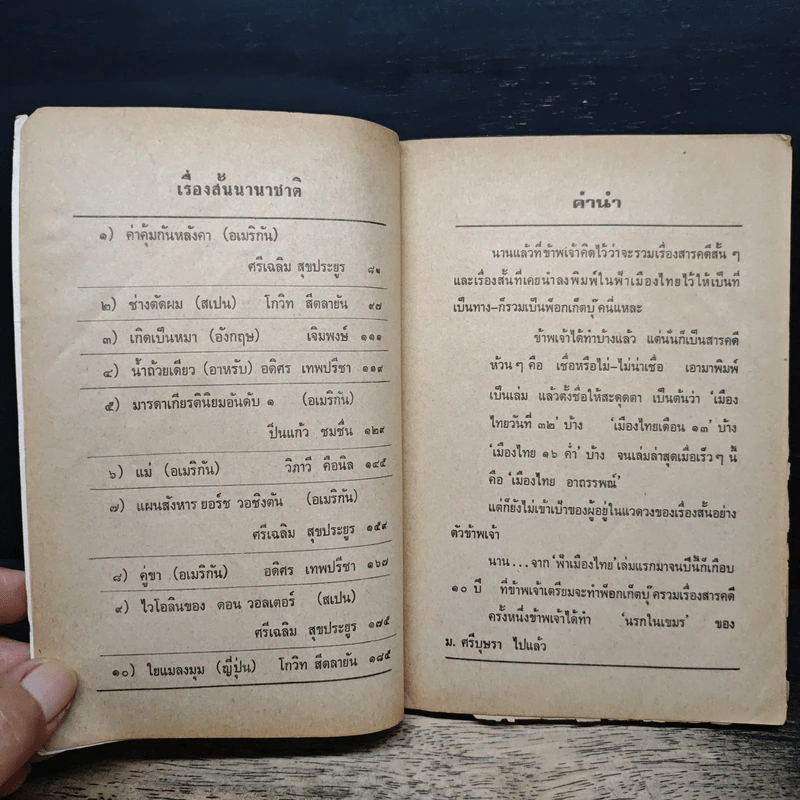 เรื่องสั้นนานาชาติ
๑) ค่าคุ้มกันหลังคา (อเมริกัน)
ศรีเฉลิม สุขประยูร ๘๑
๒) ช่างตัดผม (สเปน) โกวิท สีตลายัน ๙๗
๓) เกิดเป็นหมา (อังกฤษ) เจิมพงษ์ ๑๑๑
๔) น้ำถ้วยเดียว (อาหรับ) อดิศร เทพปรีชา ๑๑๙
๕) มารดาเกียรตินิยมอันดับ ๑ (อเมริกัน)
ปิ่นแก้ว ชมชื่น ๑๒๙
๖) แม่ (อเมริกัน) วิภาวี คือนิล ๑๔๕
๗) แผนสังหาร ยอร์ช วอชิงตัน (อเมริกัน)
ศรีเฉลิม สุขประยูร ๑๕๙
๘) คู่ขา (อเมริกัน) อดิศร เทพปรีชา ๑๖๗
๙) ไวโอลินของ ดอน วอลเตอร์ (สเปน)
ศรีเฉลิม สุขประยูร ๑๗๕
๑๐) ใยแมลงมุม (ญี่ปุ่น) โกวิท สีตลายัน ๑๘๕
คำนำ
นานแล้วที่ข้าพเจ้าคิดไว้ว่าจะรวมเรื่องสารคดีสั้น ๆ
และเรื่องสั้นที่เคยนำลงพิมพ์ในฟ้าเมืองไทยไว้ให้เป็นที่
เป็นทาง–ก็รวมเป็นพ็อกเก็ตบุ๊คนี่แหละ
ข้าพเจ้าได้ทำบ้างแล้ว แต่นั่นก็เป็นสารคดี
ห้วน ๆ คือ เชื่อหรือไม่–ไม่น่าเชื่อ เอามาพิมพ์
เป็นเล่ม แล้วตั้งชื่อให้สะดุดตา เป็นต้นว่า ‘เมือง
ไทยวันที่ ๓๒’ บ้าง ‘เมืองไทยเดือน ๑๓’ บ้าง
‘เมืองไทย ๑๖ ค่ำ’ บ้าง จนเล่มล่าสุดเมื่อเร็ว ๆ นี้
คือ ‘เมืองไทย อาถรรพณ์’
แต่ก็ยังไม่เข้าเป้าของผู้อยู่ในแวดวงของเรื่องสั้นอย่าง
ตัวข้าพเจ้า
นาน...จาก ‘ฟ้าเมืองไทย’ เล่มแรกมาจนปีนี้ก็เกือบ
๑๐ ปี ที่ข้าพเจ้าเตรียมจะทำพ็อกเก็ตบุ๊ครวมเรื่องสารคดี
ครั้งหนึ่งข้าพเจ้าได้ทำ ‘นรกในเขมร’ ของ
ม. ศรีบุษรา ไปแล้ว